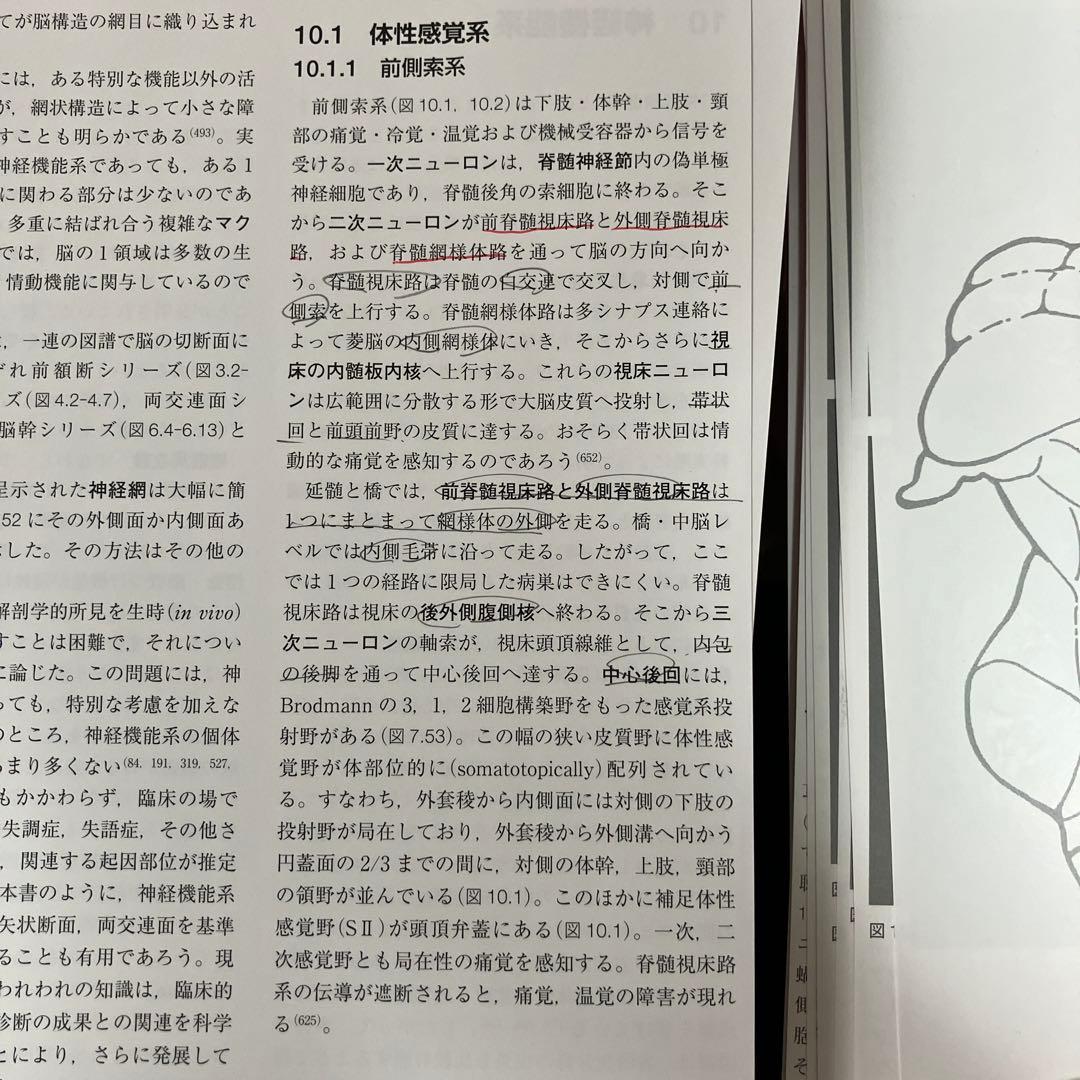 てが脳構造の網目に織り込まれ
には，ある特別な機能以外の活
が，網状構造によって小さな障
すことも明らかである(493)。実
神経機能系であっても，ある1
に関わる部分は少ないのであ
多重に結ばれ合う複雑なマク
では，脳の1領域は多数の生
情動機能に関与しているので
，一連の図譜で脳の切断面に
ぞれ前額断シリーズ(図3.2-
ズ(図4.2-4.7)，両交連面シ
脳幹シリーズ(図6.4-6.13)と
呈示された神経網は大幅に簡
52にその外側面か内側面あ
した。その方法はその他の
解剖学的所見を生時(in vivo)
すことは困難で，それについ
に論じた。この問題には，神
っても，特別な考慮を加えな
のところ，神経機能系の個体
まり多くない(84, 191, 319, 527,
もかかわらず，臨床の場で
失調症，失語症，その他さ
，関連する起因部位が推定
本書のように，神経機能系
矢状断面，両交連面を基準
ることも有用であろう。現
われわれの知識は，臨床的
診断の成果との関連を科学
とにより，さらに発展して
10.1 体性感覚系
10.1.1 前側索系
前側索系(図10.1，10.2)は下肢・体幹・上肢・頸
部の痛覚・冷覚・温覚および機械受容器から信号を
受ける。一次ニューロンは，脊髄神経節内の偽単極
神経細胞であり，脊髄後角の索細胞に終わる。そこ
から二次ニューロンが前脊髄視床路と外側脊髄視床
路，および脊髄網様体路を通って脳の方向へ向か
う。脊髄視床路は脊髄の白交連で交叉し，対側で前
側索を上行する。脊髄網様体路は多シナプス連絡に
よって菱脳の内側網様体にいき，そこからさらに視
床の内髄板内核へ上行する。これらの視床ニューロ
ンは広範囲に分散する形で大脳皮質へ投射し，帯状
回と前頭前野の皮質に達する。おそらく帯状回は情
動的な痛覚を感知するのであろう(652)。
延髄と橋では，前脊髄視床路と外側脊髄視床路は
1つにまとまって網様体の外側を走る。橋・中脳レ
ベルでは内側毛帯に沿って走る。したがって，ここ
では1つの経路に限局した病巣はできにくい。脊髄
視床路は視床の後外側腹側核へ終わる。そこから三
次ニューロンの軸索が，視床頭頂線維として，内包
の後脚を通って中心後回へ達する。中心後回には，
Brodmannの3，1，2細胞構築野をもった感覚系投
射野がある(図7.53)。この幅の狭い皮質野に体性感
覚野が体部位的に(somatotopically)配列されてい
る。すなわち，外套稜から内側面には対側の下肢の
投射野が局在しており，外套稜から外側溝へ向かう
円蓋面の2/3までの間に，対側の体幹，上肢，頸部
の領野が並んでいる(図10.1)。このほかに補足体性
感覚野(SⅡ)が頭頂弁蓋にある(図10.1)。一次，二
次感覚野とも局在性の痛覚を感知する。脊髄視床路
系の伝導が遮断されると，痛覚，温覚の障害が現れ
る(625)。
図1